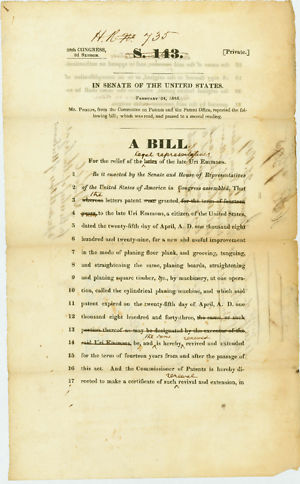 H.R. 735
28th CONGRESS,
2d Session.
S. 143.
[Private.]
IN SENATE OF THE UNITED STATES.
February 24, 1845.
Mr. Phelps, from the Committee on Patents and the Patent Office, reported the
following bill; which was read, and passed to a second reading.
A BILL
legal representatives
For the relief of the heirs of the late Uri Emmons.
1 Be it enacted by the Senate and House of Representatives
2 of the United States of America in Congress assembled, That
the
3 whereas letters patent was granted, for the term of fourteen
4 years, to the late Uri Emmons, a citizen of the United States,
5 dated the twenty-fifth day of April, A. D. one thousand eight
6 hundred and twenty-nine, for a new and useful improvement
7 in the mode of planing floor plank, and grooving, tonguing,
8 and straightening the same, planing boards, straightening
9 and planing square timber, &c., by machinery, at one opera-
10 tion, called the cylindrical planing-machine, and which said
11 patent expired on the twenty-fifth day of April, A. D. one
12 thousand eight hundred and forty-three, the same, or such
13 portion thereof as may be designated by the executor of the
the same renewed
14 said Uri Emmons, be, and is hereby, revived and extended
15 for the term of fourteen years from and after the passage of
16 this act. And the Commissioner of Patents is hereby di-
renewal
17 rected to make a certificate of such revival and extension, in